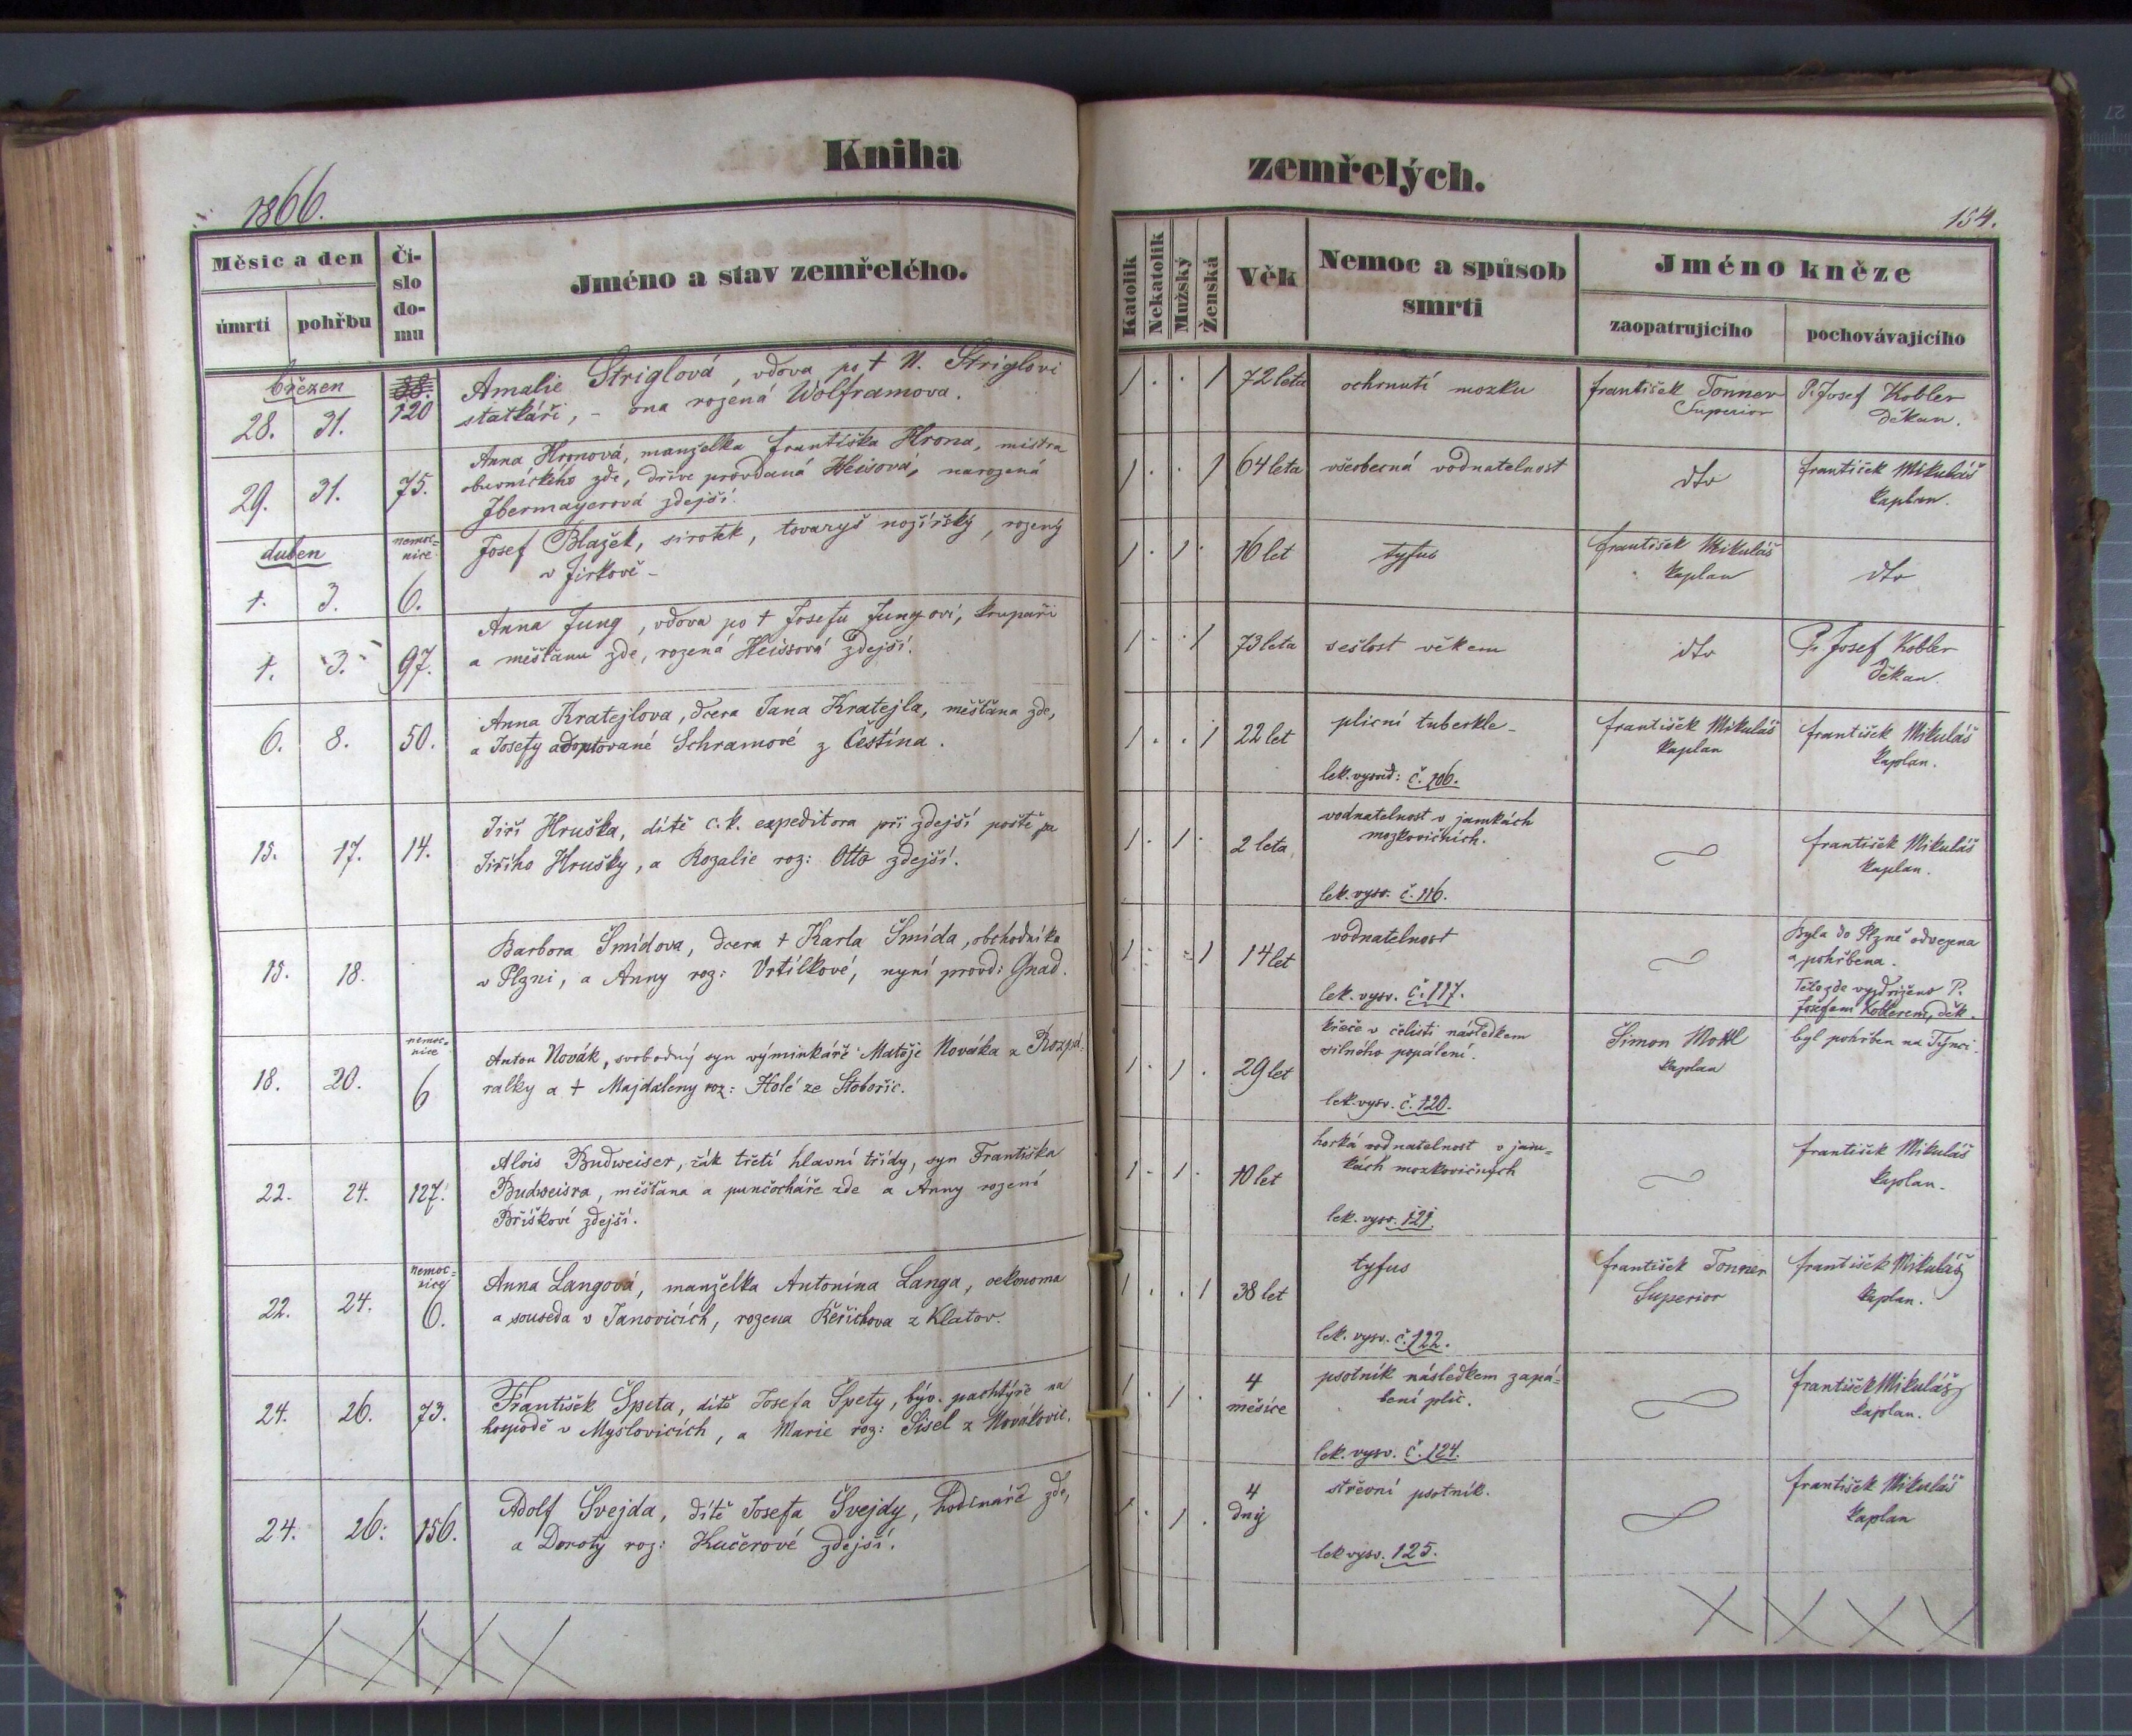 Kniha zemřelých.
1866.
154.
Měsíc a den
úmrtí
pohřbu
Čí-
slo
do-
mu
Jméno a stav zemřelého.
Katolík
Nekatolík
Mužský
Ženská
Věk
Nemoc a spůsob
smrti
Jméno kněze
zaopatrujícího
pochovávajícího
březen
28. 31. 120
Amalie Striglová, vdova po † N. Striglovi
statkáři, – ona rozená Wolframova.
1 . . 1 72 leta
ochrnutí mozku
František Tonner
Superior
P. Josef Kobler
Děkan.
29. 31. 75.
Anna Hronová, manželka Františka Hrona, mistra
obuvnického zde, dříve provdaná Heisová, narozená
Ibermayerová zdejší.
1 . . 1 64 leta
všeobecná vodnatelnost
dto
František Mikuláš
kaplan.
duben
1. 3.
nemoc=
nice
6.
Josef Blažek, sirotek, tovaryš nožířský, rozený
v Jirkově –
1 . 1 . 16 let
tyfus
František Mikuláš
kaplan
dto
1. 3. 97.
Anna Jung, vdova po † Josefu Jungovi, krupaři
a měšťanu zde, rozená Heissová zdejší.
1 . . 1 73 leta
sešlost věkem
dto
P. Josef Kobler
Děkan.
6. 8. 50.
Anna Kratejlova, dcera Jana Kratejla, měšťana zde,
a Josefy adoptované Schramové z Čestína.
1 . . 1 22 let
plicní tuberkle –
lek. vysvd: č. 106.
František Mikuláš
kaplan
František Mikuláš
kaplan.
15. 17. 14.
Jiří Hruška, dítě c. k. expeditora při zdejší poště pa
Jiřího Hrušky, a Rozalie roz: Otto zdejší.
1 . 1 . 2 leta
vodnatelnost v jamkách
mozkovičních.
lek. vysv. č. 116.
František Mikuláš
kaplan.
15. 18.
Barbora Šmídova, dcera † Karla Šmída, obchodníka
v Plzni, a Anny roz: Vrtilkové, nyní provd: Gnad.
1 . . 1 14 let
vodnatelnost
lek. vysv. č. 117.
Byla do Plzně odvezena
a pohřbena.
Tělo zde vydviženo P.
Josefem Koblerem, děk.
18. 20.
nemoc=
nice
6
Anton Novák, svobodný syn výminkáře Matěje Nováka z Rozpá=
ralky a † Majdaleny roz: Holé ze Stobořic.
1 . 1 . 29 let
křeče v čelisti následkem
silného popálení.
lek. vysv. č. 120.
Šimon Mottl
kaplan
byl pohřben na Týnci.
22. 24. 127.
Alois Budweiser, žák třetí hlavní třídy, syn Františka
Budweisra, měšťana a punčocháře zde a Anny rozené
Bříškové zdejší.
1 . 1 . 10 let
horká vodnatelnost v jam=
kách mozkovičných
lek. vysv. 121.
František Mikuláš
kaplan.
22. 24.
nemoc=
nice
6.
Anna Langová, manželka Antonína Langa, oekonoma
a souseda v Janovicích, rozena Řeřichova z Klatov.
1 . . 1 38 let
tyfus
lek. vysv. č. 122.
František Tonner
Superior
František Mikuláš
kaplan.
24. 26. 73.
František Špeta, dítě Josefa Špety, býv. pachtýře na
hospodě v Myslovicích, a Marie roz: Sisel z Novákovic.
1 . 1 . 4
měsíce
psotník následkem zapá=
lení plic.
lek. vysv. č. 124.
František Mikuláš
kaplan.
24. 26. 156.
Adolf Švejda, dítě Josefa Švejdy, hodináře zde,
a Doroty roz: Kučerové zdejší.
1 . 1 . 4
dny
střevní psotník.
lek vysv. 125.
František Mikuláš
kaplan